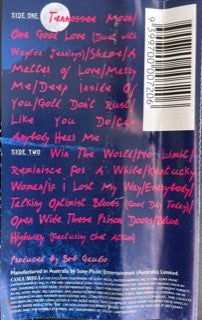 SIDE ONE Tennessee Moon/
One Good Love (Duet with
Waylon Jennings)/Shame/A
Matter of Love/Marry
Me/Deep Inside Of
You/Gold Don't Rust/
Like You Do/Can
Anybody Hear Me
SIDE TWO Win The World/No Limit/
Reminisce For A While/Kentucky
Woman/If I Lost My Way/Everybody/
Talking Optimist Blues (Good Day Today)/
Open Wide These Prison Doors/Blue
Highway (Featuring Chet Atkins)
Produced by Bob Gaudio
Manufactured in Australia by Sony Music Entertainment (Australia) Limited.
COLUMBIA
9399700007206